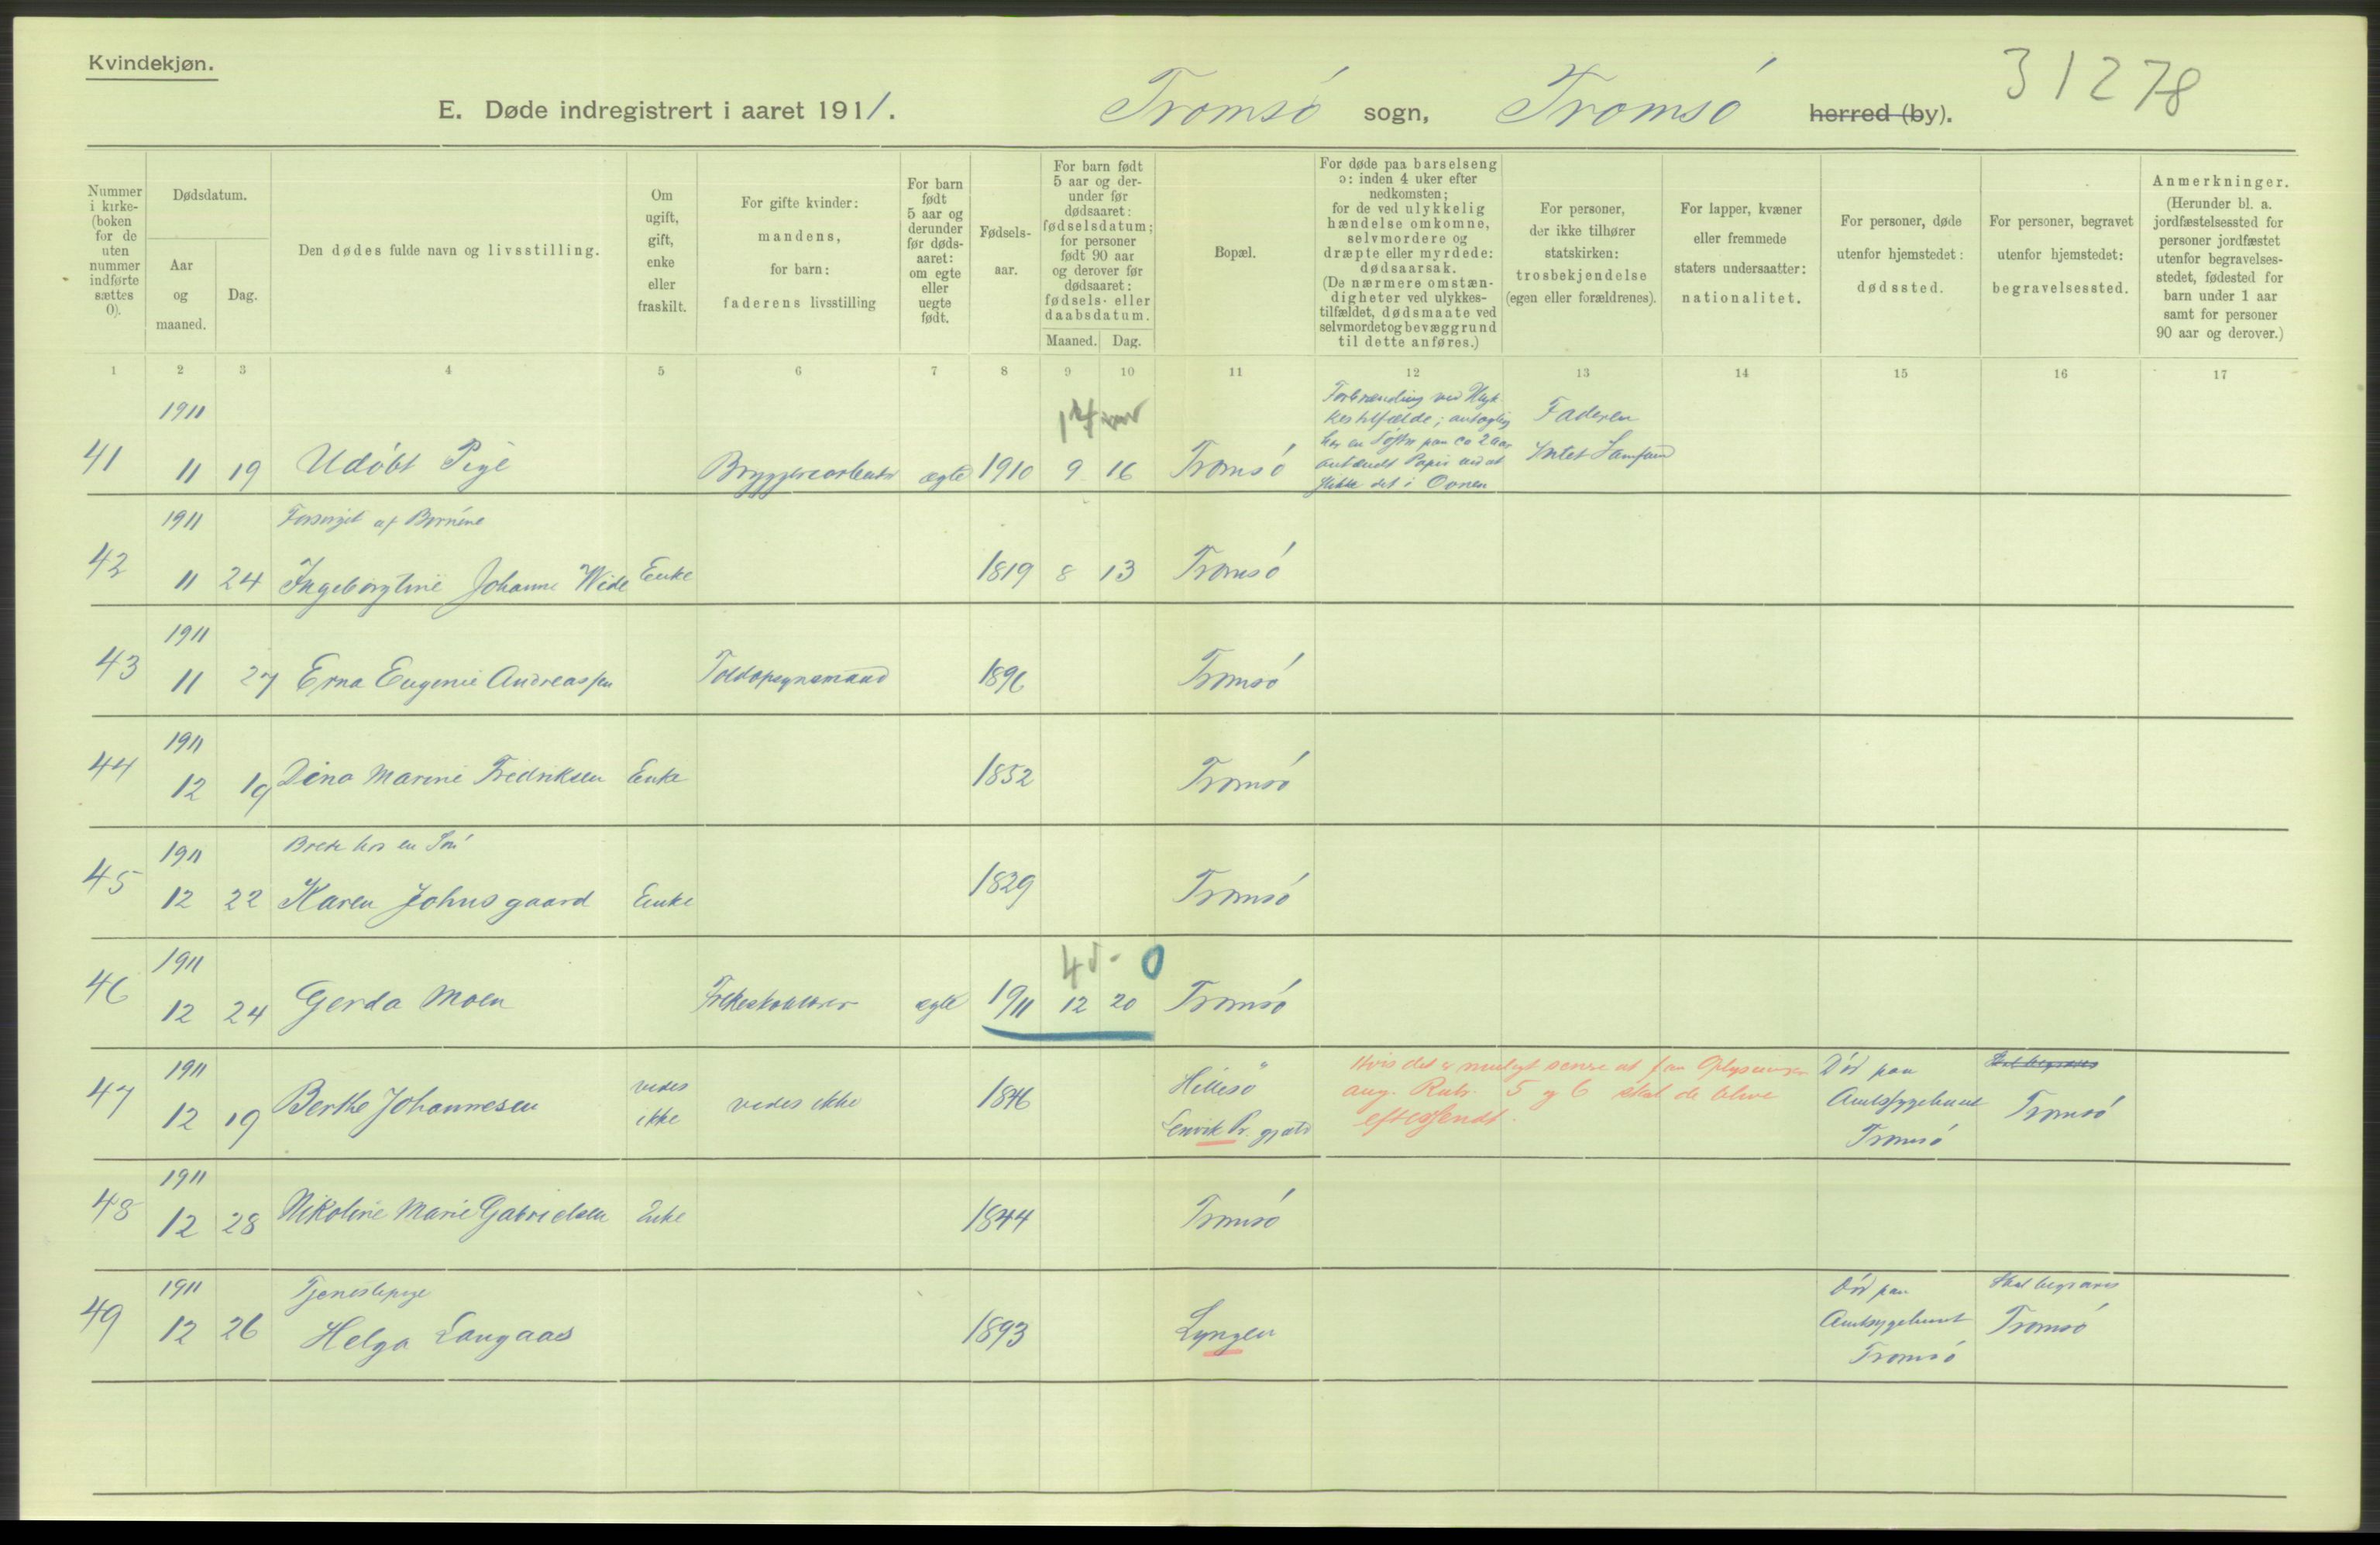 Kvindekjøn.
31278
E. Døde indregistrert i aaret 1911. Tromsó sogn, Tromsó herred (by).
Nummer i kirke- (boken for de uten nummer indførte sættes 0).
Dødsdatum.
Aar og maaned.
Dag.
Den dødes fulde navn og livsstilling.
Om ugift, gift, enke eller fraskilt.
For gifte kvinder: mandens, for barn: faderens livsstilling
For barn født 5 aar og derunder før døds- aaret: om egte eller uegte født.
Fødsels- aar.
For barn født 5 aar og der- under før dødsaaret: fødselsdatum; for personer født 90 aar og derover før dødsaaret: fødsels- eller daabsdatum.
Maaned. Dag.
Bopæl.
For døde paa barselseng ɔ: inden 4 uker efter nedkomsten; for de ved ulykkelig hændelse omkomne, selvmordere og dræpte eller myrdede: dødsaarsak. (De nærmere omstæn- digheter ved ulykkes- tilfældet, dødsmaate ved selvmord et og bevæggrund til dette anføres.)
For personer, der ikke tilhører statskirken: trosbekjendelse (egen eller forældrenes).
For lapper, kvæner eller fremmede staters undersaatter: nationalitet.
For personer, døde utenfor hjemstedet: dødssted.
For personer, begravet utenfor hjemstedet: begravelsessted.
Anmerkninger. (Herunder bl. a. jordfæstelsessted for personer jordfæstet utenfor begravelses- stedet, fødested for barn under 1 aar samt for personer 90 aar og derover.)
1 2 3 4 5 6 7 8 9 10 11 12 13 14 15 16 17
1911
41 11 19 Udóbt Pige Bryggeriarbeider ægte 1910 9 16 Tromsó
Forbrænding ved Ulyk-
kestilfælde; antagelig
har en Søster paa ca 2 aar
antændt Papir ved at
stikke det i Ovnen
Faderen
Intet Samfund
1911 Forsørget af Børnene
42 11 24 Ingeborgtine Johanne Wide Enke 1819 8 13 Tromsó
1911
43 11 27 Erna Eugenie Andreassen Toldopsynsmand 1896 Tromsó
1911
44 12 19 Dina Marine Fredriksen Enke 1852 Tromsó
1911 hos en Són
45 12 22 Karen Johnsgaard Enke 1829 Tromsó
1911 0
46 12 24 Gerda Moen Folkeskolelærer ægte 1911 12 20 Tromsó
1911
47 12 19 Berthe Johannesen vides ikke vides ikke 1846 Hillesö
Lenvik Pr. gjæld
Hvis det er muligt senere at faa Oplysninger
ang. Rubr. 5 og 6 skal de blive
eftersendt.
Dód paa
Amtssygehuset
Tromsó
Skal begraves
Tromsó
1911
48 12 28 Nikoline Marie Gabrielsen Enke 1844 Tromsó
1911 Tjenestepige
49 12 26 Helga Langaas 1893 Lyngen
Dód paa
Amtssygehuset
Tromsó
Skal begraves
Tromsó